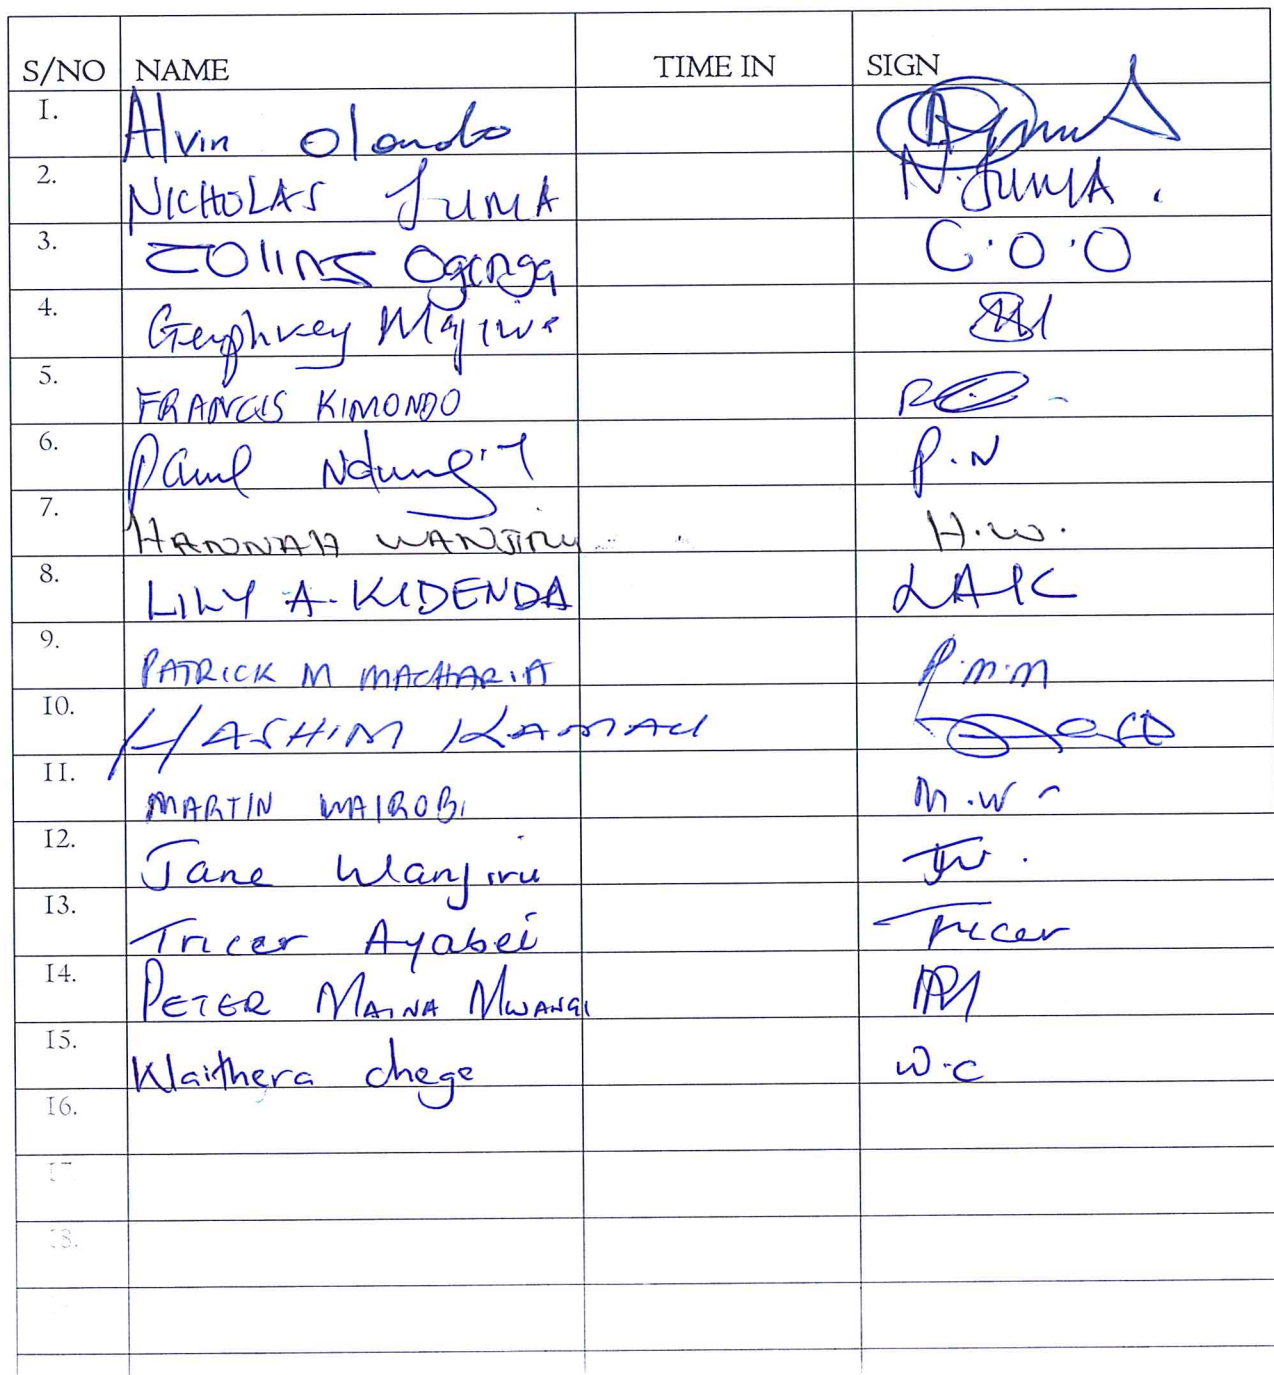 S/NO NAME TIME IN SIGN
1. Alvin Olando
2. NICHOLAS JUMA N. JUMA.
3. COllINS Ogenga C.O.O
4. Geophrey Majiwa
5. FRANCIS KIMONDO
6. Paul P.N
7. HANNAH WANJIRU H.W.
8. LILY A. KIDENDA LAK
9. PATRICK M MACHARIA P.M.M
10. HASHIM KAMAU
11. MARTIN WAIROBI M.W
12. Jane Wanjiru JW.
13. Tricer Ayabei Tricer
14. PETER MAINA MWANGI PM
15. Waithera chege W.C
16.
17
18.